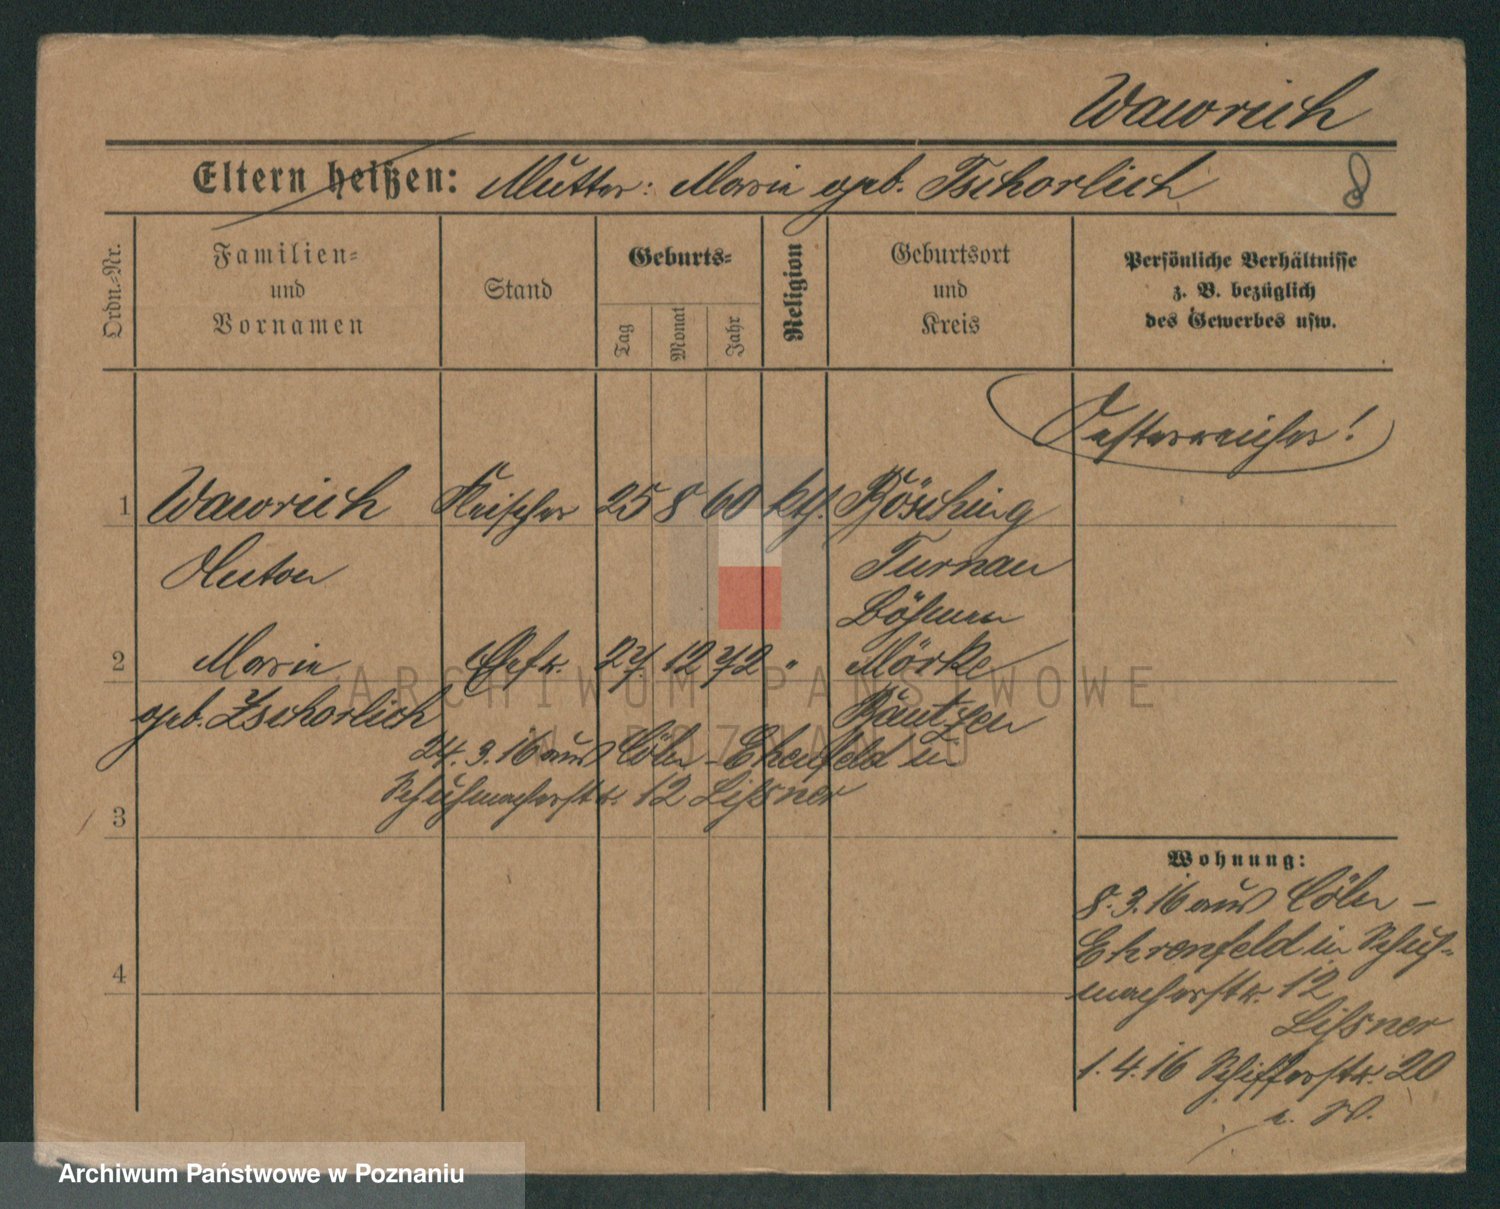 Wawrich
Eltern heißen: Mutter: Marie geb. Tschorlich
8
Ordn.-Nr.
Familien-
und
Vornamen
Stand
Geburts-
Tag
Monat
Jahr
Religion
Geburtsort
und
Kreis
Persönliche Verhältnisse
z. B. bezüglich
des Gewerbes usw.
Oesterreicher!
1 Wawrich Fleischer 25 8 60 kth. Bösching
Anton Turnau
Böhmen
2 Marie Ehefr. 27. 12 72 " Mörke
geb. Zschorlich Bautzen
24. 3. 16 aus Cöln - Ehrenfeld in
Schuhmacherstr. 12 Lissner
3
4
Wohnung:
8. 3. 16 aus Cöln -
Ehrenfeld in Schuh-
macherstr. 12
Lissner
1. 4. 16 Schifferstr. 20
i. W.
ARCHIWUM PAŃSTWOWE
W POZNANIU
Archiwum Państwowe w Poznaniu